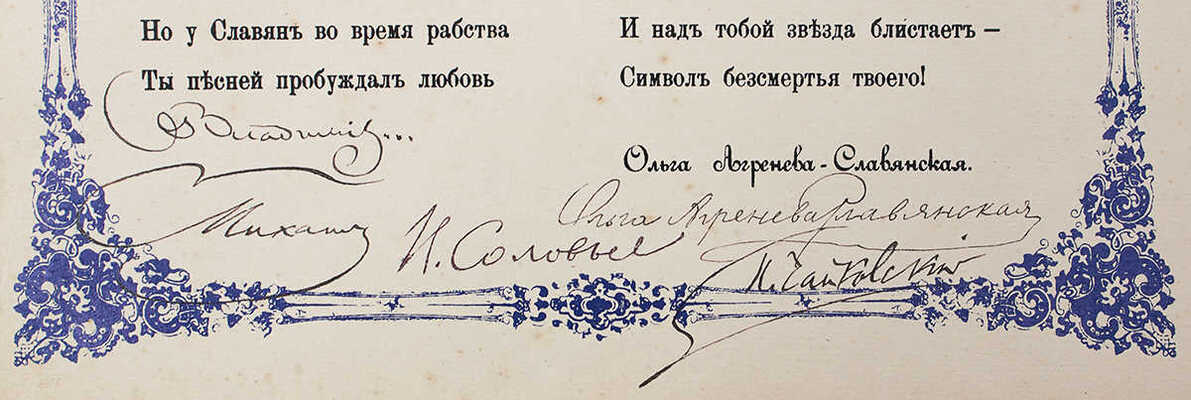 Но у Славянъ во время рабства
Ты пѣсней пробуждалъ любовь
И надъ тобой звѣзда блистаетъ —
Символъ безсмертья твоего!
Ольга Агренева-Славянская.
Владимiръ...
Михаилъ
Н. Соловьев
Ольга Агренева Славянская
П. Чайковскiй